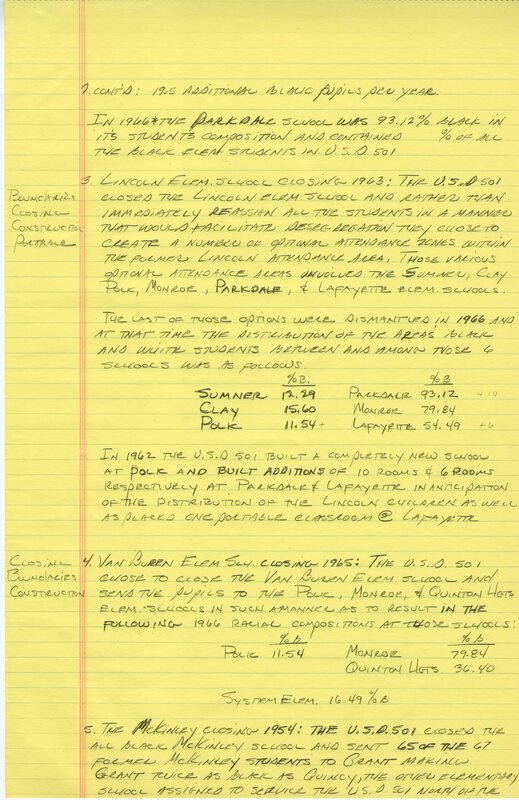 2. CONT'D: 19.5 ADDITIONAL BLACK PUPILS PER YEAR.
IN 1966 THE PARKDALE SCHOOL WAS 93.12% BLACK IN
IT'S STUDENTS COMPOSITION AND CONTAINED % OF ALL
THE BLACK ELEM. STUDENTS IN U.S.D 501.
BOUNDARIES
CLOSING
CONSTRUCTION
PORTABLE
3. LINCOLN ELEM. SCHOOL CLOSING 1963: THE U.S.D 501
CLOSED THE LINCOLN ELEM. SCHOOL AND RATHER THAN
IMMEDIATELY REASSIGN ALL THE STUDENTS IN A MANNER
THAT WOULD FACILITATE DESEGREGATION THEY CLOSE TO
CREATE A NUMBER OF OPTIONAL ATTENDANCE ZONES WITHIN
THE FORMER LINCOLN ATTENDANCE AREA. THOSE VARIOUS
OPTIONAL ATTENDANCE AREAS INVOLVED THE SUMNER, CLAY
POLK, MONROE, PARKDALE, & LAFAYETTE ELEM. SCHOOLS.
THE LAST OF THOSE OPTIONS WERE DISMANTLED IN 1966 AND
AT THAT TIME THE DISTRIBUTION OF THE AREAS BLACK
AND WHITE STUDENTS BETWEEN AND AMONG THOSE 6
SCHOOLS WAS AS FOLLOWS
%B. %B
SUMNER 12.29 PARKDALE 93.12 +10
CLAY 15.60 MONROE 79.84
POLK 11.54+ LAFAYETTE 54.49 +6
IN 1962 THE U.S.D 501 BUILT A COMPLETELY NEW SCHOOL
AT POLK AND BUILT ADDITIONS OF 10 ROOMS & 6 ROOMS
RESPECTIVELY AT PARKDALE & LAFAYETTE IN ANTICIPATION
OF THE DISTRIBUTION OF THE LINCOLN CHILDREN AS WELL
AS PLACED ONE PORTABLE CLASSROOM @ LAFAYETTE
CLOSING
BOUNDARIES
CONSTRUCTION
4. VAN BUREN ELEM SCH. CLOSING 1965: THE U.S.D. 501
CHOSE TO CLOSE THE VAN BUREN ELEM SCHOOL AND
SEND THE PUPILS TO THE POLK, MONROE, & QUINTON HGTS
ELEM. SCHOOLS IN SUCH A MANNER AS TO RESULT IN THE
FOLLOWING 1966 RACIAL COMPOSITIONS AT THOSE SCHOOLS:
%B %B
POLK 11.54 MONROE 79.84
QUINTON HGTS. 36.40
SYSTEM ELEM. 16.49 %B
5. THE MCKINLEY CLOSING 1954: THE U.S.D.501 CLOSED THE
ALL BLACK MCKINLEY SCHOOL AND SENT 65 OF THE 67
FORMER MCKINLEY STUDENTS TO GRANT MAKING
GRANT TWICE AS BLACK AS QUINCY, THE OTHER ELEMENTARY
SCHOOL ASSIGNED TO SERVICE THE U.S.D. 501 NORTH OF THE